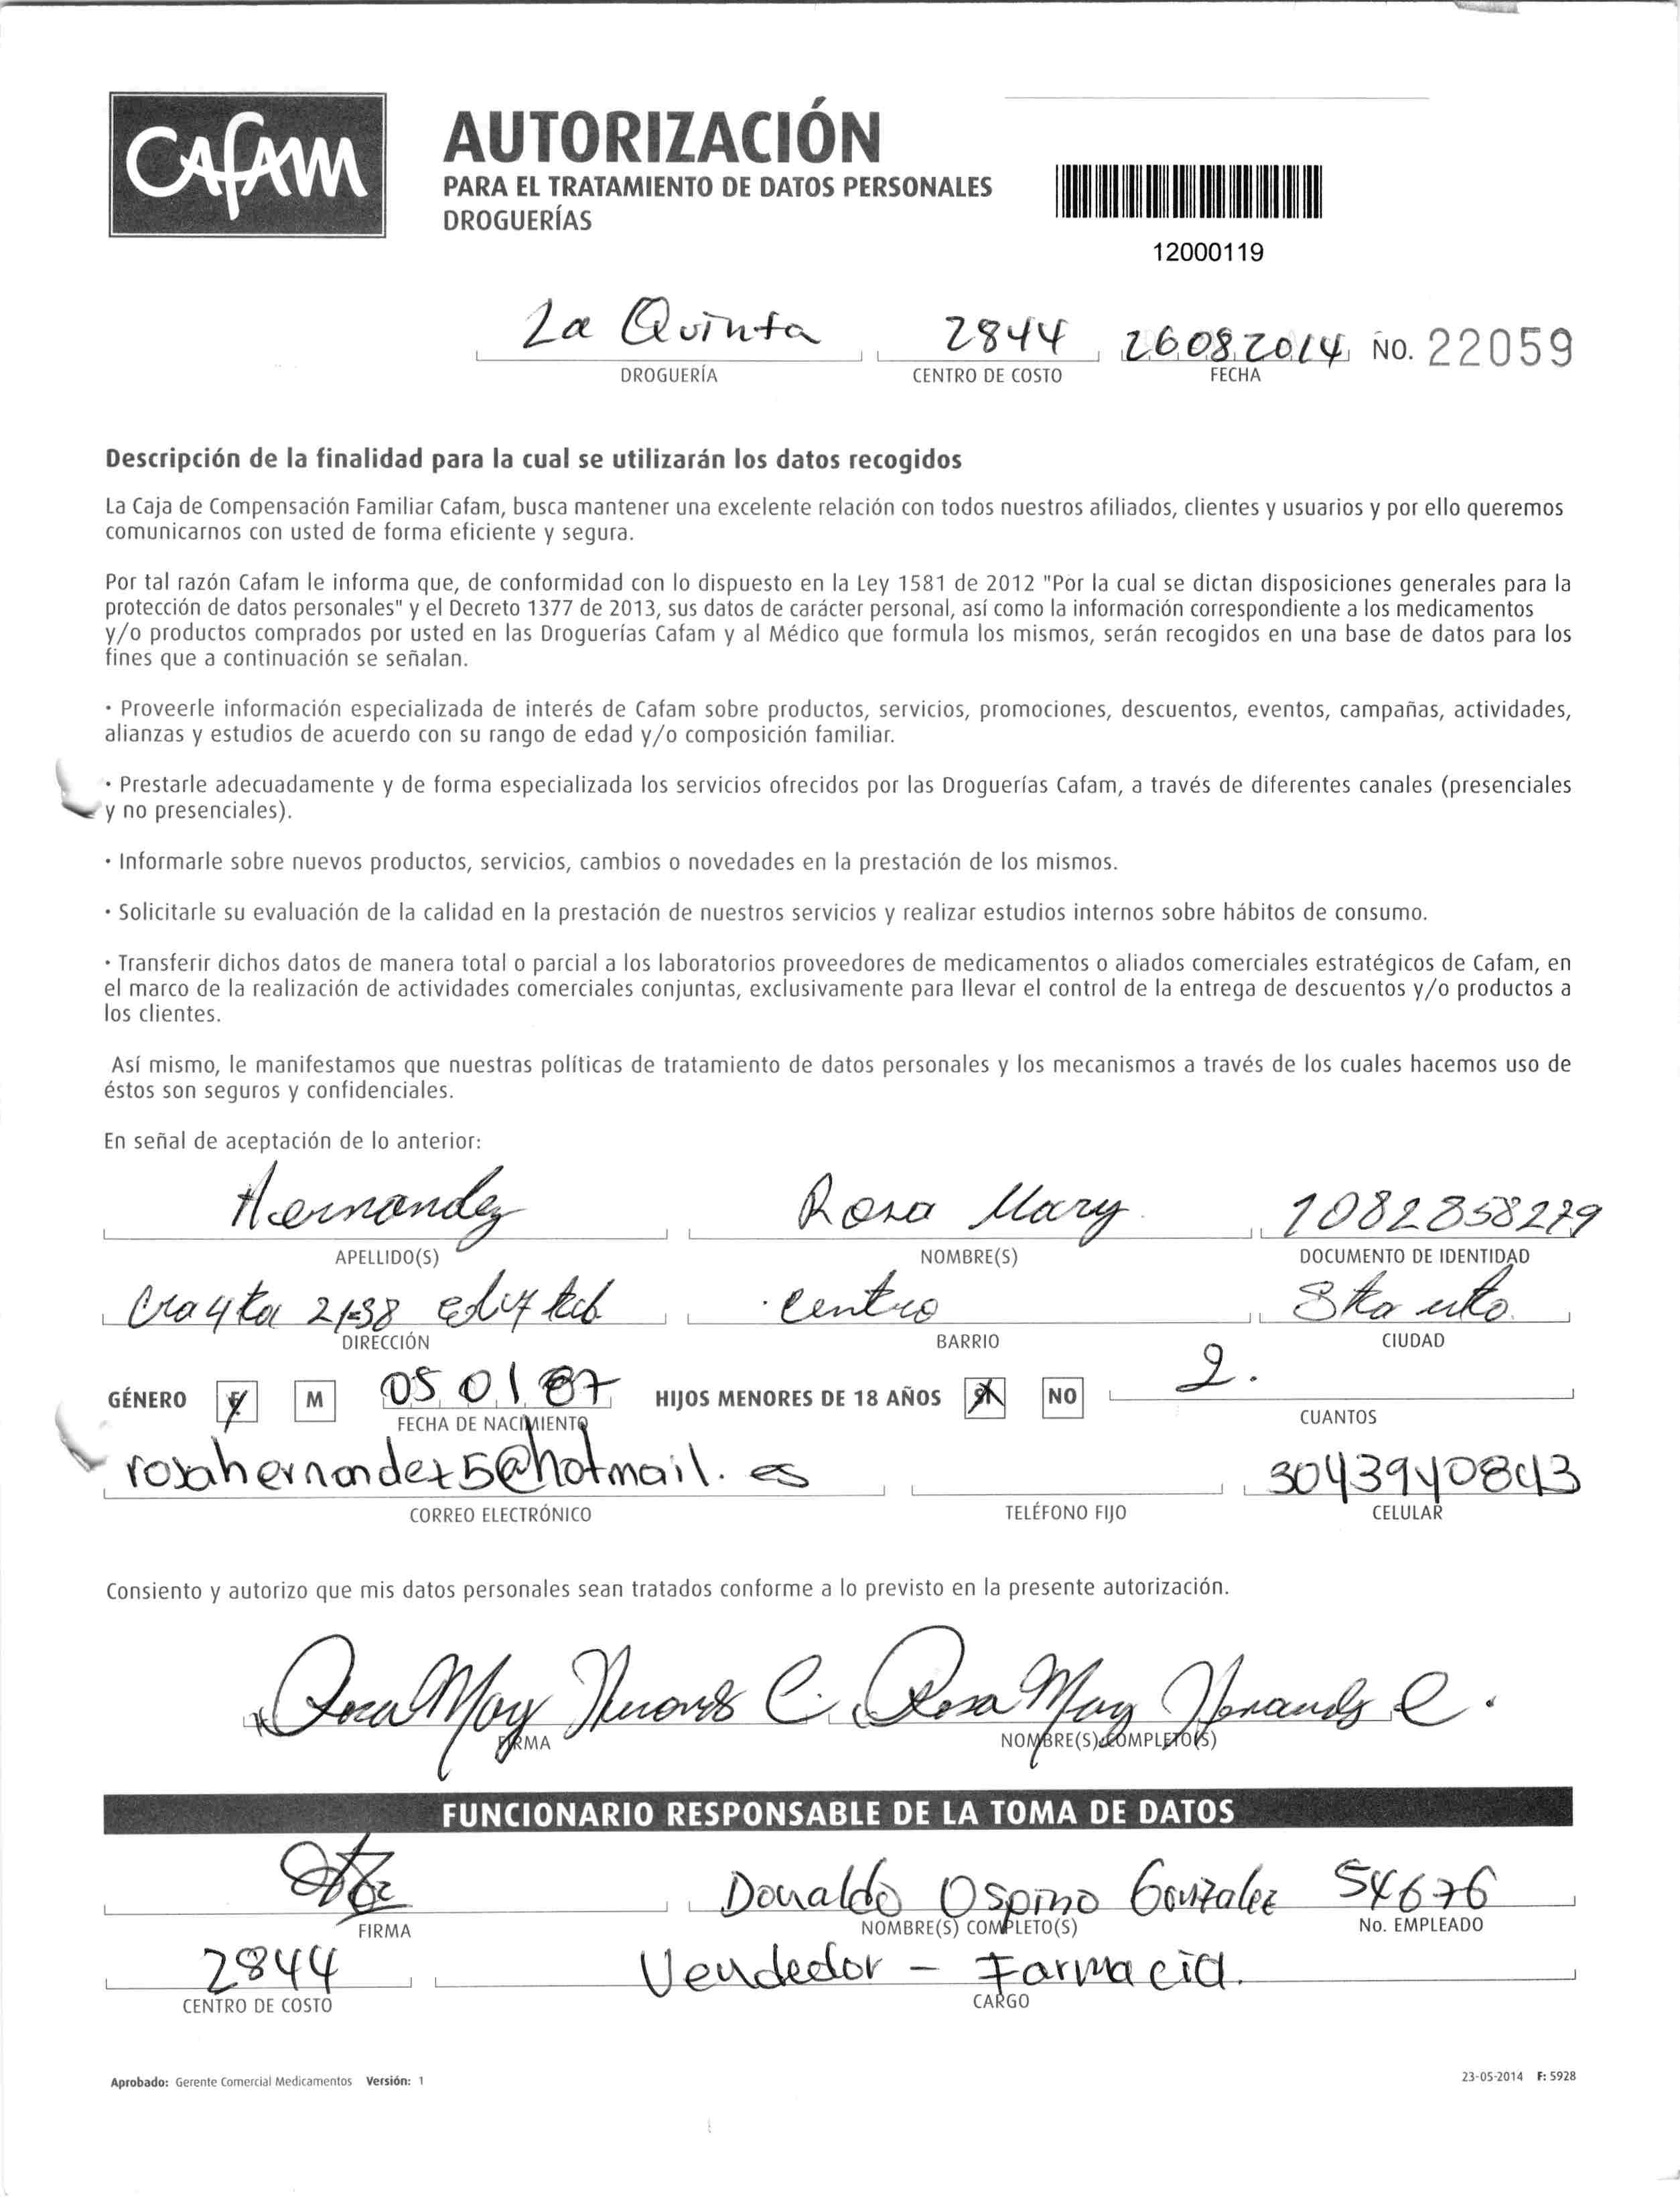 CAFAM
AUTORIZACIÓN
PARA EL TRATAMIENTO DE DATOS PERSONALES
DROGUERÍAS
12000119
La Quinta 2844 26082014 NO. 22059
DROGUERÍA CENTRO DE COSTO FECHA
Descripción de la finalidad para la cual se utilizarán los datos recogidos
La Caja de Compensación Familiar Cafam, busca mantener una excelente relación con todos nuestros afiliados, clientes y usuarios y por ello queremos
comunicarnos con usted de forma eficiente y segura.
Por tal razón Cafam le informa que, de conformidad con lo dispuesto en la Ley 1581 de 2012 "Por la cual se dictan disposiciones generales para la
protección de datos personales" y el Decreto 1377 de 2013, sus datos de carácter personal, así como la información correspondiente a los medicamentos
y/o productos comprados por usted en las Droguerías Cafam y al Médico que formula los mismos, serán recogidos en una base de datos para los
fines que a continuación se señalan.
· Proveerle información especializada de interés de Cafam sobre productos, servicios, promociones, descuentos, eventos, campañas, actividades,
alianzas y estudios de acuerdo con su rango de edad y/o composición familiar.
· Prestarle adecuadamente y de forma especializada los servicios ofrecidos por las Droguerías Cafam, a través de diferentes canales (presenciales
y no presenciales).
· Informarle sobre nuevos productos, servicios, cambios o novedades en la prestación de los mismos.
· Solicitarle su evaluación de la calidad en la prestación de nuestros servicios y realizar estudios internos sobre hábitos de consumo.
· Transferir dichos datos de manera total o parcial a los laboratorios proveedores de medicamentos o aliados comerciales estratégicos de Cafam, en
el marco de la realización de actividades comerciales conjuntas, exclusivamente para llevar el control de la entrega de descuentos y/o productos a
los clientes.
Así mismo, le manifestamos que nuestras políticas de tratamiento de datos personales y los mecanismos a través de los cuales hacemos uso de
éstos son seguros y confidenciales.
En señal de aceptación de lo anterior:
Hernandez Rosa Mary 1082858279
APELLIDO(S) NOMBRE(S) DOCUMENTO DE IDENTIDAD
Cra 4ta 21-38 centro Sta
DIRECCIÓN BARRIO CIUDAD
GÉNERO F M 05 01 87 HIJOS MENORES DE 18 AÑOS SI NO 2.
FECHA DE NACIMIENTO CUANTOS
rosahernandez5@hotmail.es 3043940843
CORREO ELECTRÓNICO TELÉFONO FIJO CELULAR
Consiento y autorizo que mis datos personales sean tratados conforme a lo previsto en la presente autorización.
Rosa Mary Hernandez C. Rosa Mary Hernandez C.
FIRMA NOMBRE(S) COMPLETO(S)
FUNCIONARIO RESPONSABLE DE LA TOMA DE DATOS
Donaldo Ospino Gonzalez 54676
FIRMA NOMBRE(S) COMPLETO(S) No. EMPLEADO
2844 Vendedor - Farmacia.
CENTRO DE COSTO CARGO
Aprobado: Gerente Comercial Medicamentos Versión: 1 23-05-2014 F: 5928